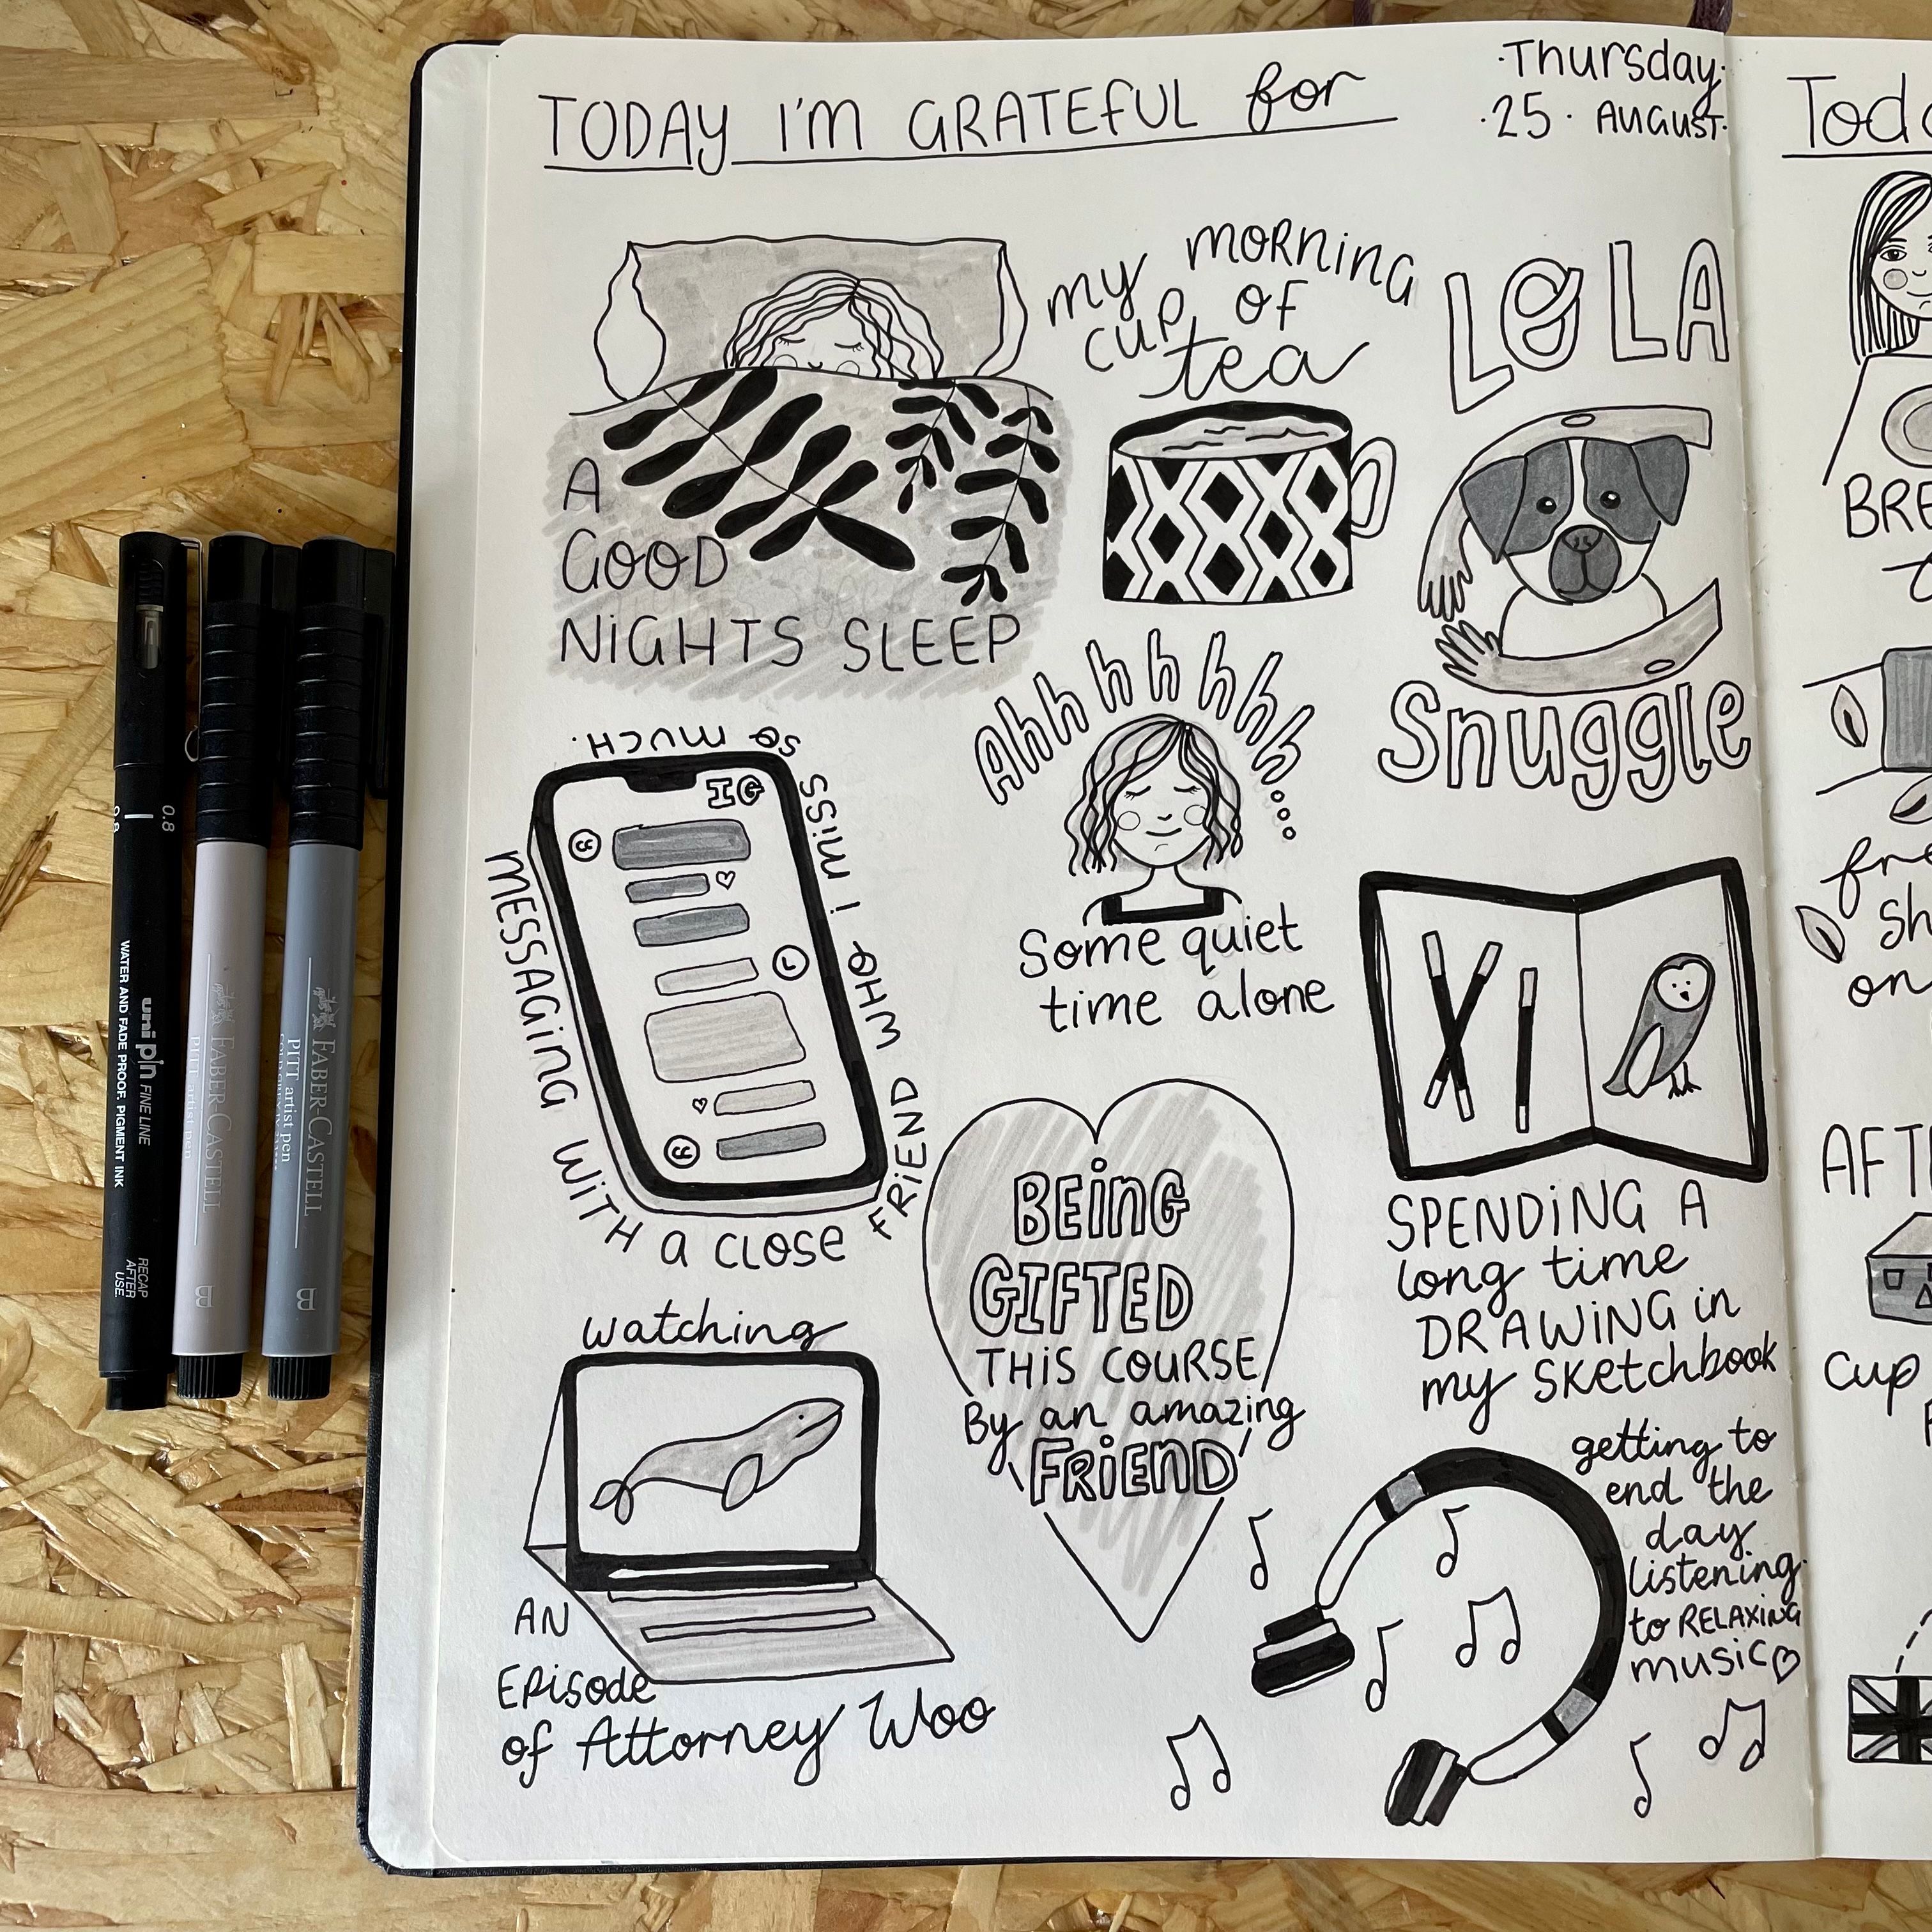 TODAY I'M GRATEFUL for
Thursday
25 · AUGUST
A
GOOD
NIGHTS SLEEP
my morning
cup of
tea
LOLA
Snuggle
MESSAGING WITH A CLOSE FRIEND WHO I MISS SO MUCH.
IG
Ahhhhhhh...
Some quiet
time alone
SPENDING A
long time
DRAWING in
my Sketchbook
BEING
GIFTED
THIS COURSE
By an amazing
FRIEND
watching
AN
EPISODE
of Attorney Woo
getting to
end the
day
listening
to RELAXING
music
0.8
uni pin FINE LINE
WATER AND FADE PROOF, PIGMENT INK
RECAP
AFTER
USE.
FABER-CASTELL
PITT artist pen
B
FABER-CASTELL
PITT artist pen
B
Cup
on